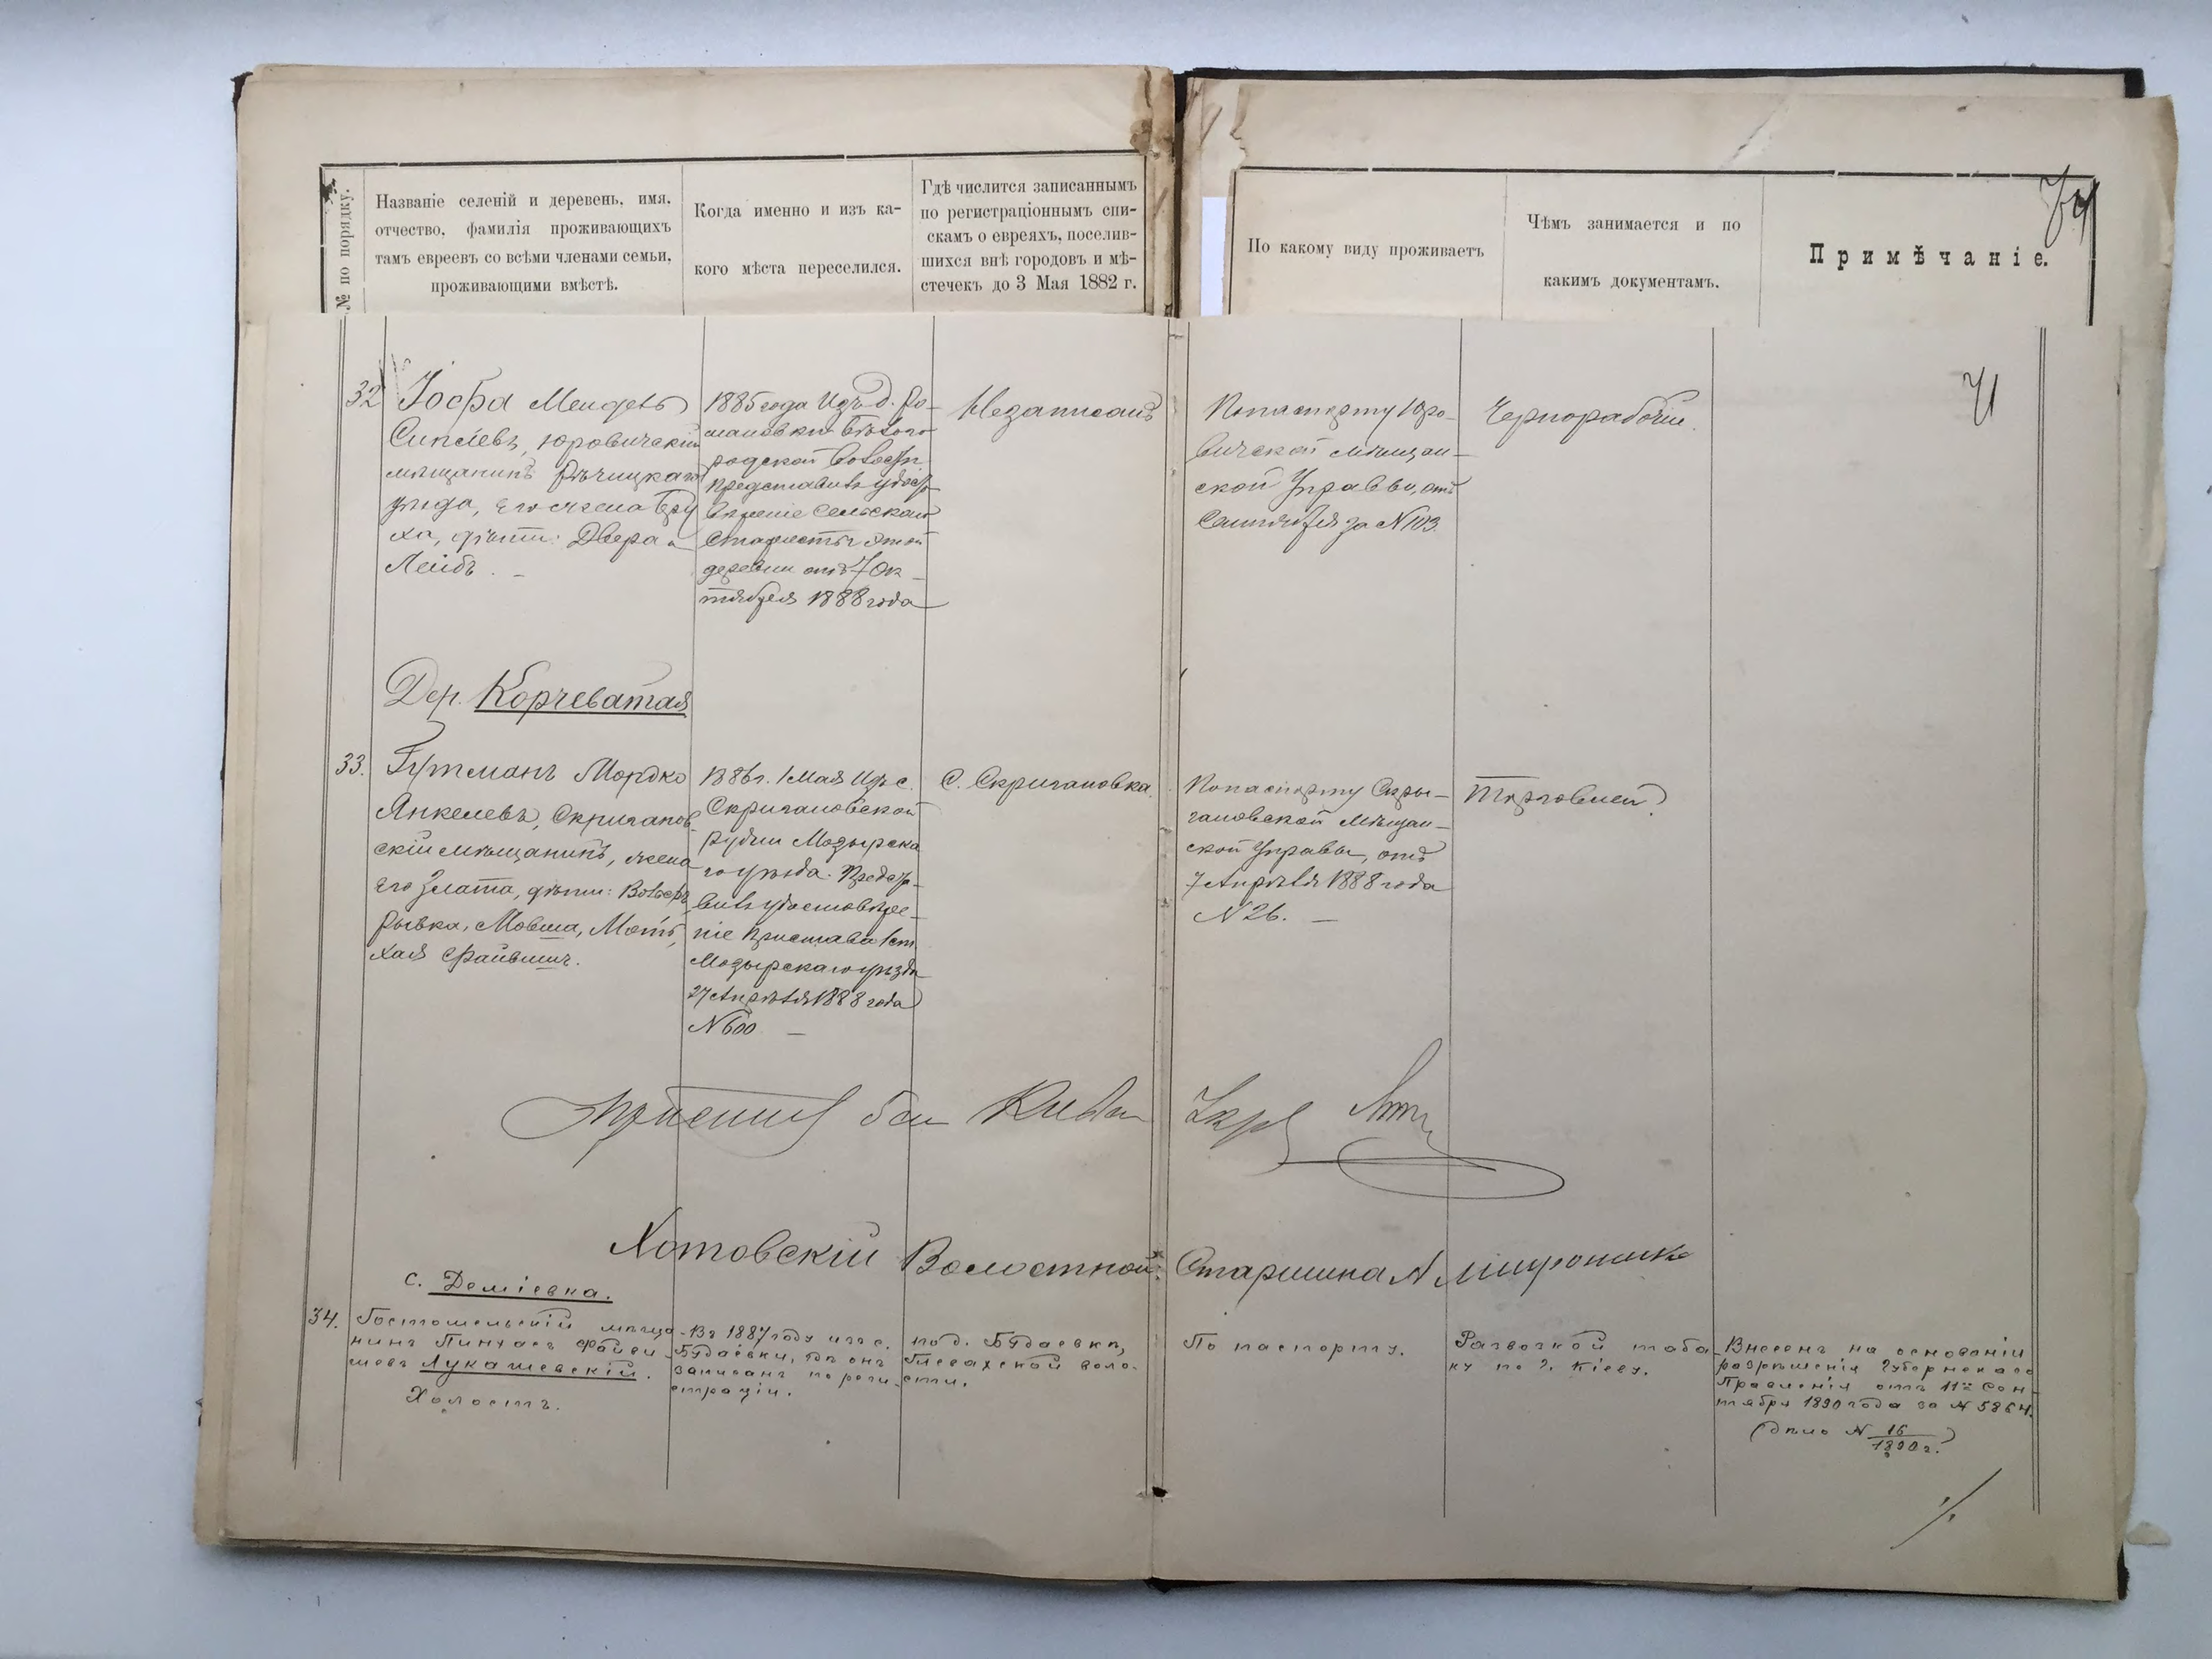 № по порядку.
Названіе селеній и деревень, имя,
отчество, фамилія проживающихъ
тамъ евреевъ со всѣми членами семьи,
проживающими вмѣстѣ.
Когда именно и изъ ка-
кого мѣста переселился.
Гдѣ числится записаннымъ
по регистраціоннымъ спи-
скамъ о евреяхъ, поселив-
шихся внѣ городовъ и мѣ-
стечекъ до 3 Мая 1882 г.
По какому виду проживаетъ
Чѣмъ занимается и по
какимъ документамъ.
Примѣчаніе.
32
Іофра Мендель
юровичскій
мѣщанинъ Рѣчицкаго
уѣзда, его жена
ха, дѣти: Двера и
Лейбъ. –
1885 года Изъ д. Ро-
мановки Бѣлого-
родской волости
Представилъ удосто-
вѣреніе Сельскаго
Старосты этой
деревни отъ 7 Ок-
тября 1888 года
Незаписанъ
По паспорту Юро-
вичской мѣщан-
ской Управы, отъ
Сентября за N 103.
Чернорабочій.
Дер. Корчеватая
33.
Гутманъ Мордко
Янкелевъ, Скриганов-
скій мѣщанинъ, жена
его Злата, дѣти: Вольфъ,
Рывка, Мовша, Мотъ,
Хая Файвишъ.
1886 г. 1 Мая Изъ с.
Скригановской
Рудни Мозырска-
го уѣзда. Предста-
вилъ удостовѣре-
ніе Пристава 1 ст.
Мозырскаго уѣзда
27 Апрѣля 1888 года
N 600 –
С. Скригановка.
По паспорту Скры-
гановской Мѣщан-
ской Управы, отъ
7 Апрѣля 1888 года
N 26. –
Торговлей
Хотовскій Волостной Старшина А Мирошник
с. Деміевка.
34.
Гостомельскій мѣща-
нинъ Пинхасъ Файви-
шевъ Лукашевскій.
Холостъ.
Въ 1887 году изъ с.
Будаевки, гдѣ онъ
записанъ по реги-
страціи.
по д. Будаевка,
Глевахской воло-
сти.
По паспорту.
Развозкой таба-
ку по г. Кіеву.
Внесенъ на основаніи
разрѣшенія Губернскаго
Правленія отъ 11го Сен-
тября 1890 года за № 5864.
(дѣло № 16/1890 г.)